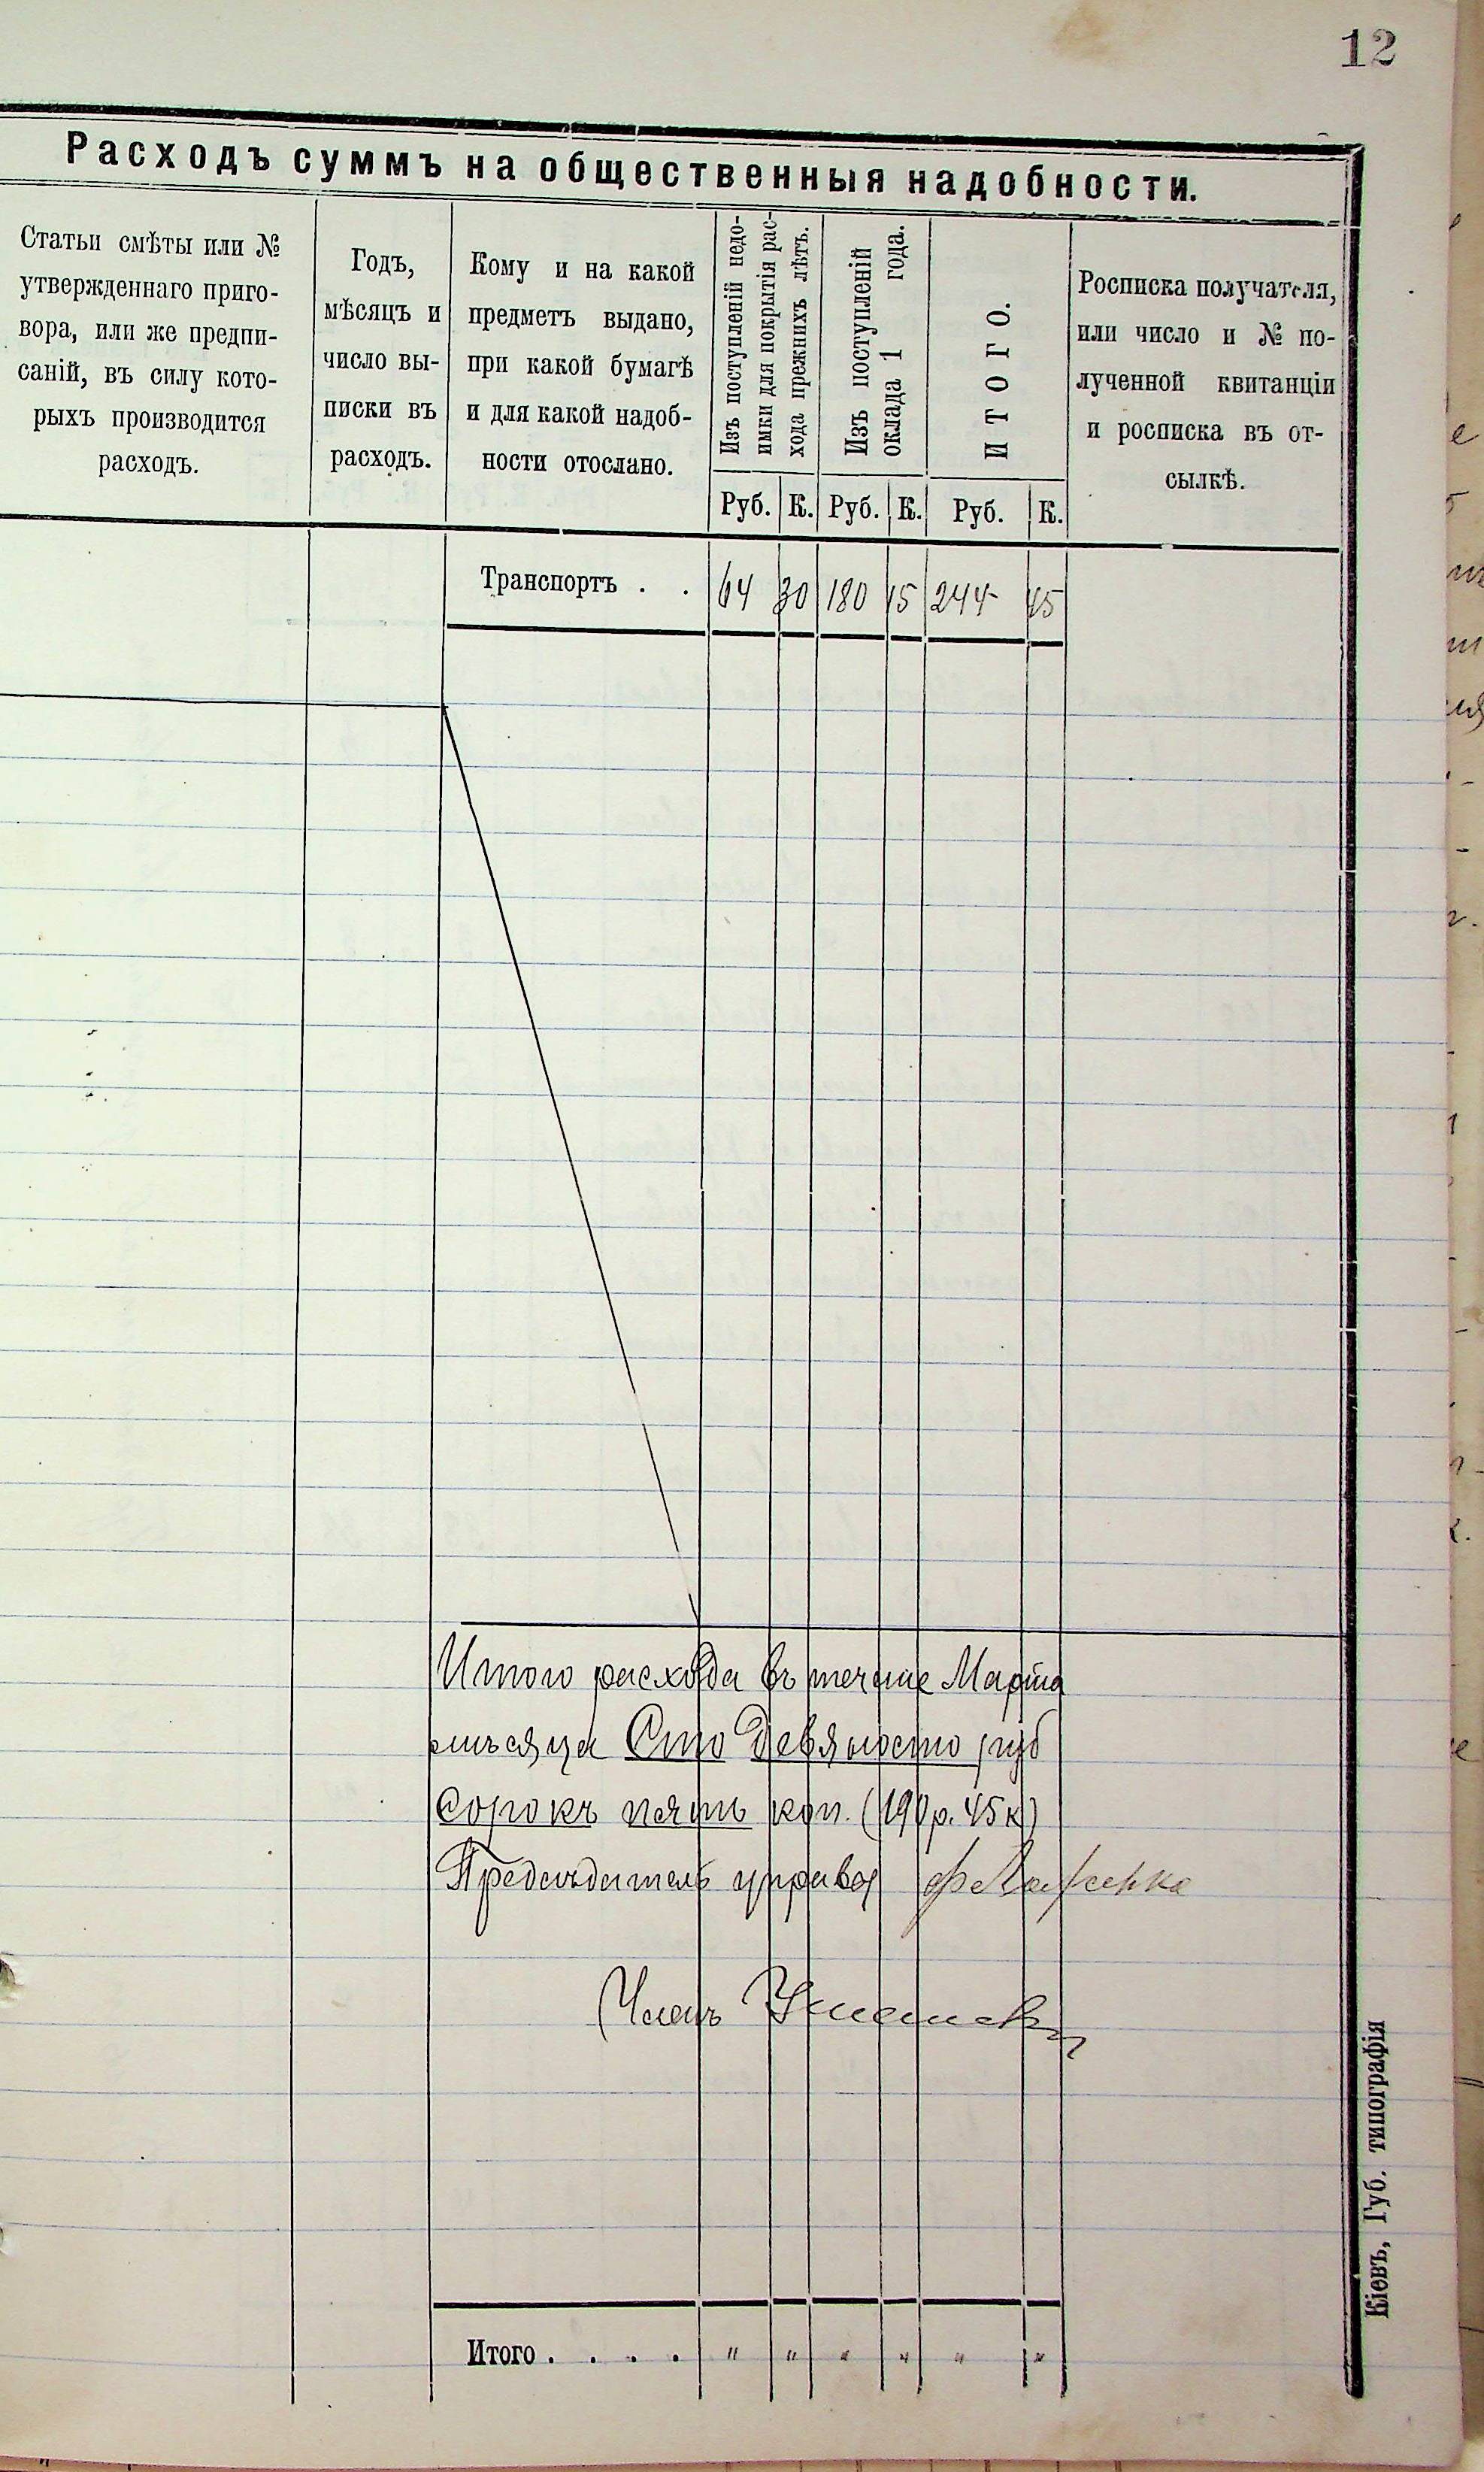 12
Расходъ суммъ на общественныя надобности.
Статьи смѣты или №
утвержденнаго приго-
вора, или же предпи-
саній, въ силу кото-
рыхъ производится
расходъ.
Годъ,
мѣсяцъ и
число вы-
писки въ
расходъ.
Кому и на какой
предметъ выдано,
при какой бумагѣ
и для какой надоб-
ности отослано.
Изъ поступленій недо-
имки для покрытія рас-
хода прежнихъ лѣтъ.
Изъ поступленій
оклада 1 года.
ИТОГО.
Росписка получателя,
или число и № по-
лученной квитанціи
и росписка въ от-
сылкѣ.
Руб. К. Руб. К. Руб. К.
Транспортъ . . 64 30 180 15 244 45
Итого расхода въ течение Марта
мѣсяца Сто девяносто руб
сорокъ пять коп. (190 р. 45 к)
Предсѣдатель управы
Членъ
Итого . . . . " " " " " "
Кіевъ, Губ. типографія